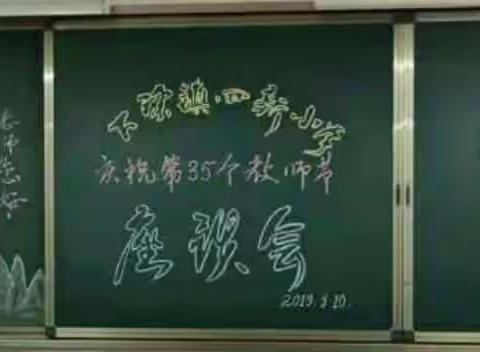 老师您好
下镇小学
庆祝第35个教师节
座谈会
2019.9.10.